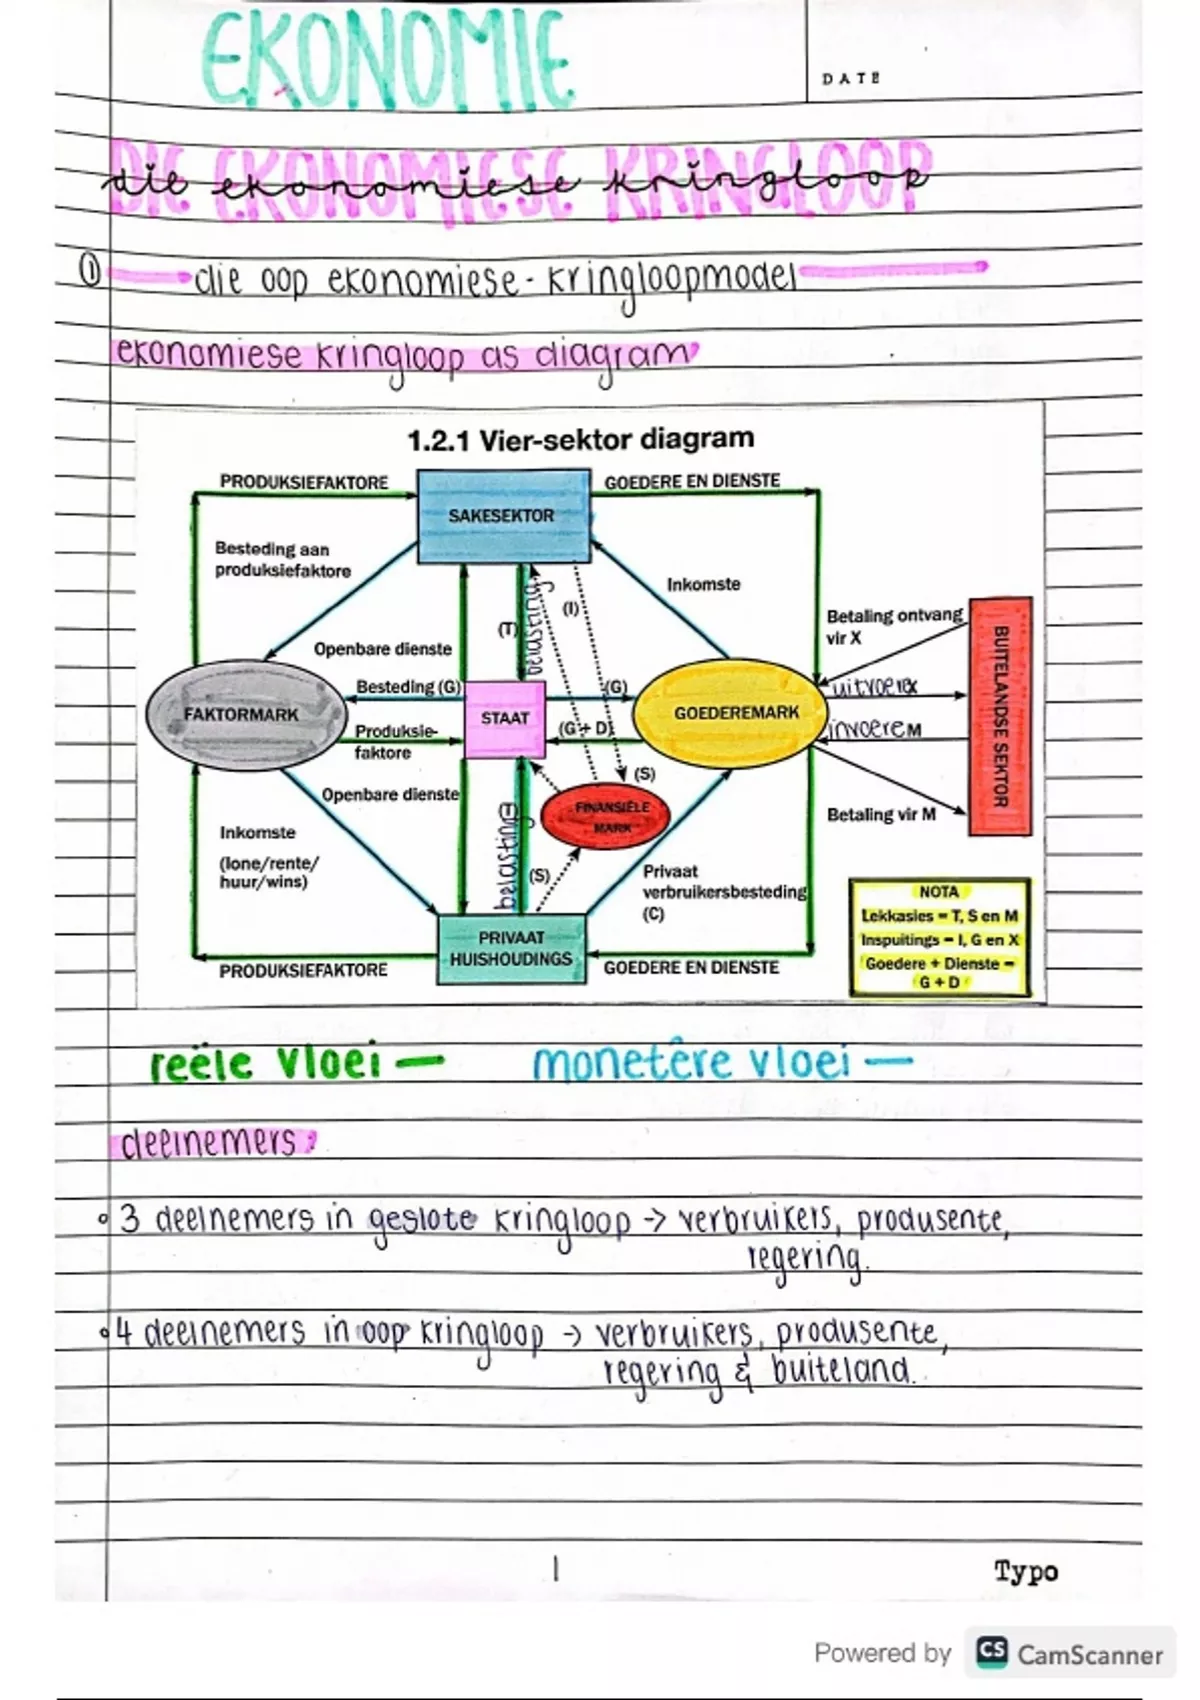 EKONOMIE
DATE
DIE EKONOMIESE KRINGLOOP
die ekonomiese kringloop
① die oop ekonomiese-kringloopmodel
ekonomiese kringloop as diagram
1.2.1 Vier-sektor diagram
PRODUKSIEFAKTORE
GOEDERE EN DIENSTE
SAKESEKTOR
Besteding aan
produksiefaktore
Inkomste
(I)
(T)
belasting
Betaling ontvang
vir X
Openbare dienste
Besteding (G)
(G)
uitvoere X
FAKTORMARK
STAAT
GOEDEREMARK
BUITELANDSE SEKTOR
Produksie-
faktore
(G + D)
invoere M
(S)
Openbare dienste
FINANSIËLE
MARK
Betaling vir M
belasting
Inkomste
(lone/rente/
huur/wins)
(S)
Privaat
verbruikersbesteding
(C)
NOTA
Lekkasies = T, S en M
Inspuitings = I, G en X
Goedere + Dienste =
G + D
PRIVAAT
HUISHOUDINGS
PRODUKSIEFAKTORE
GOEDERE EN DIENSTE
reële vloei — monetêre vloei —
deelnemers
• 3 deelnemers in geslote kringloop → verbruikers, produsente,
regering.
• 4 deelnemers in oop kringloop → verbruikers, produsente,
regering & buiteland.
1
Typo
Powered by CS CamScanner